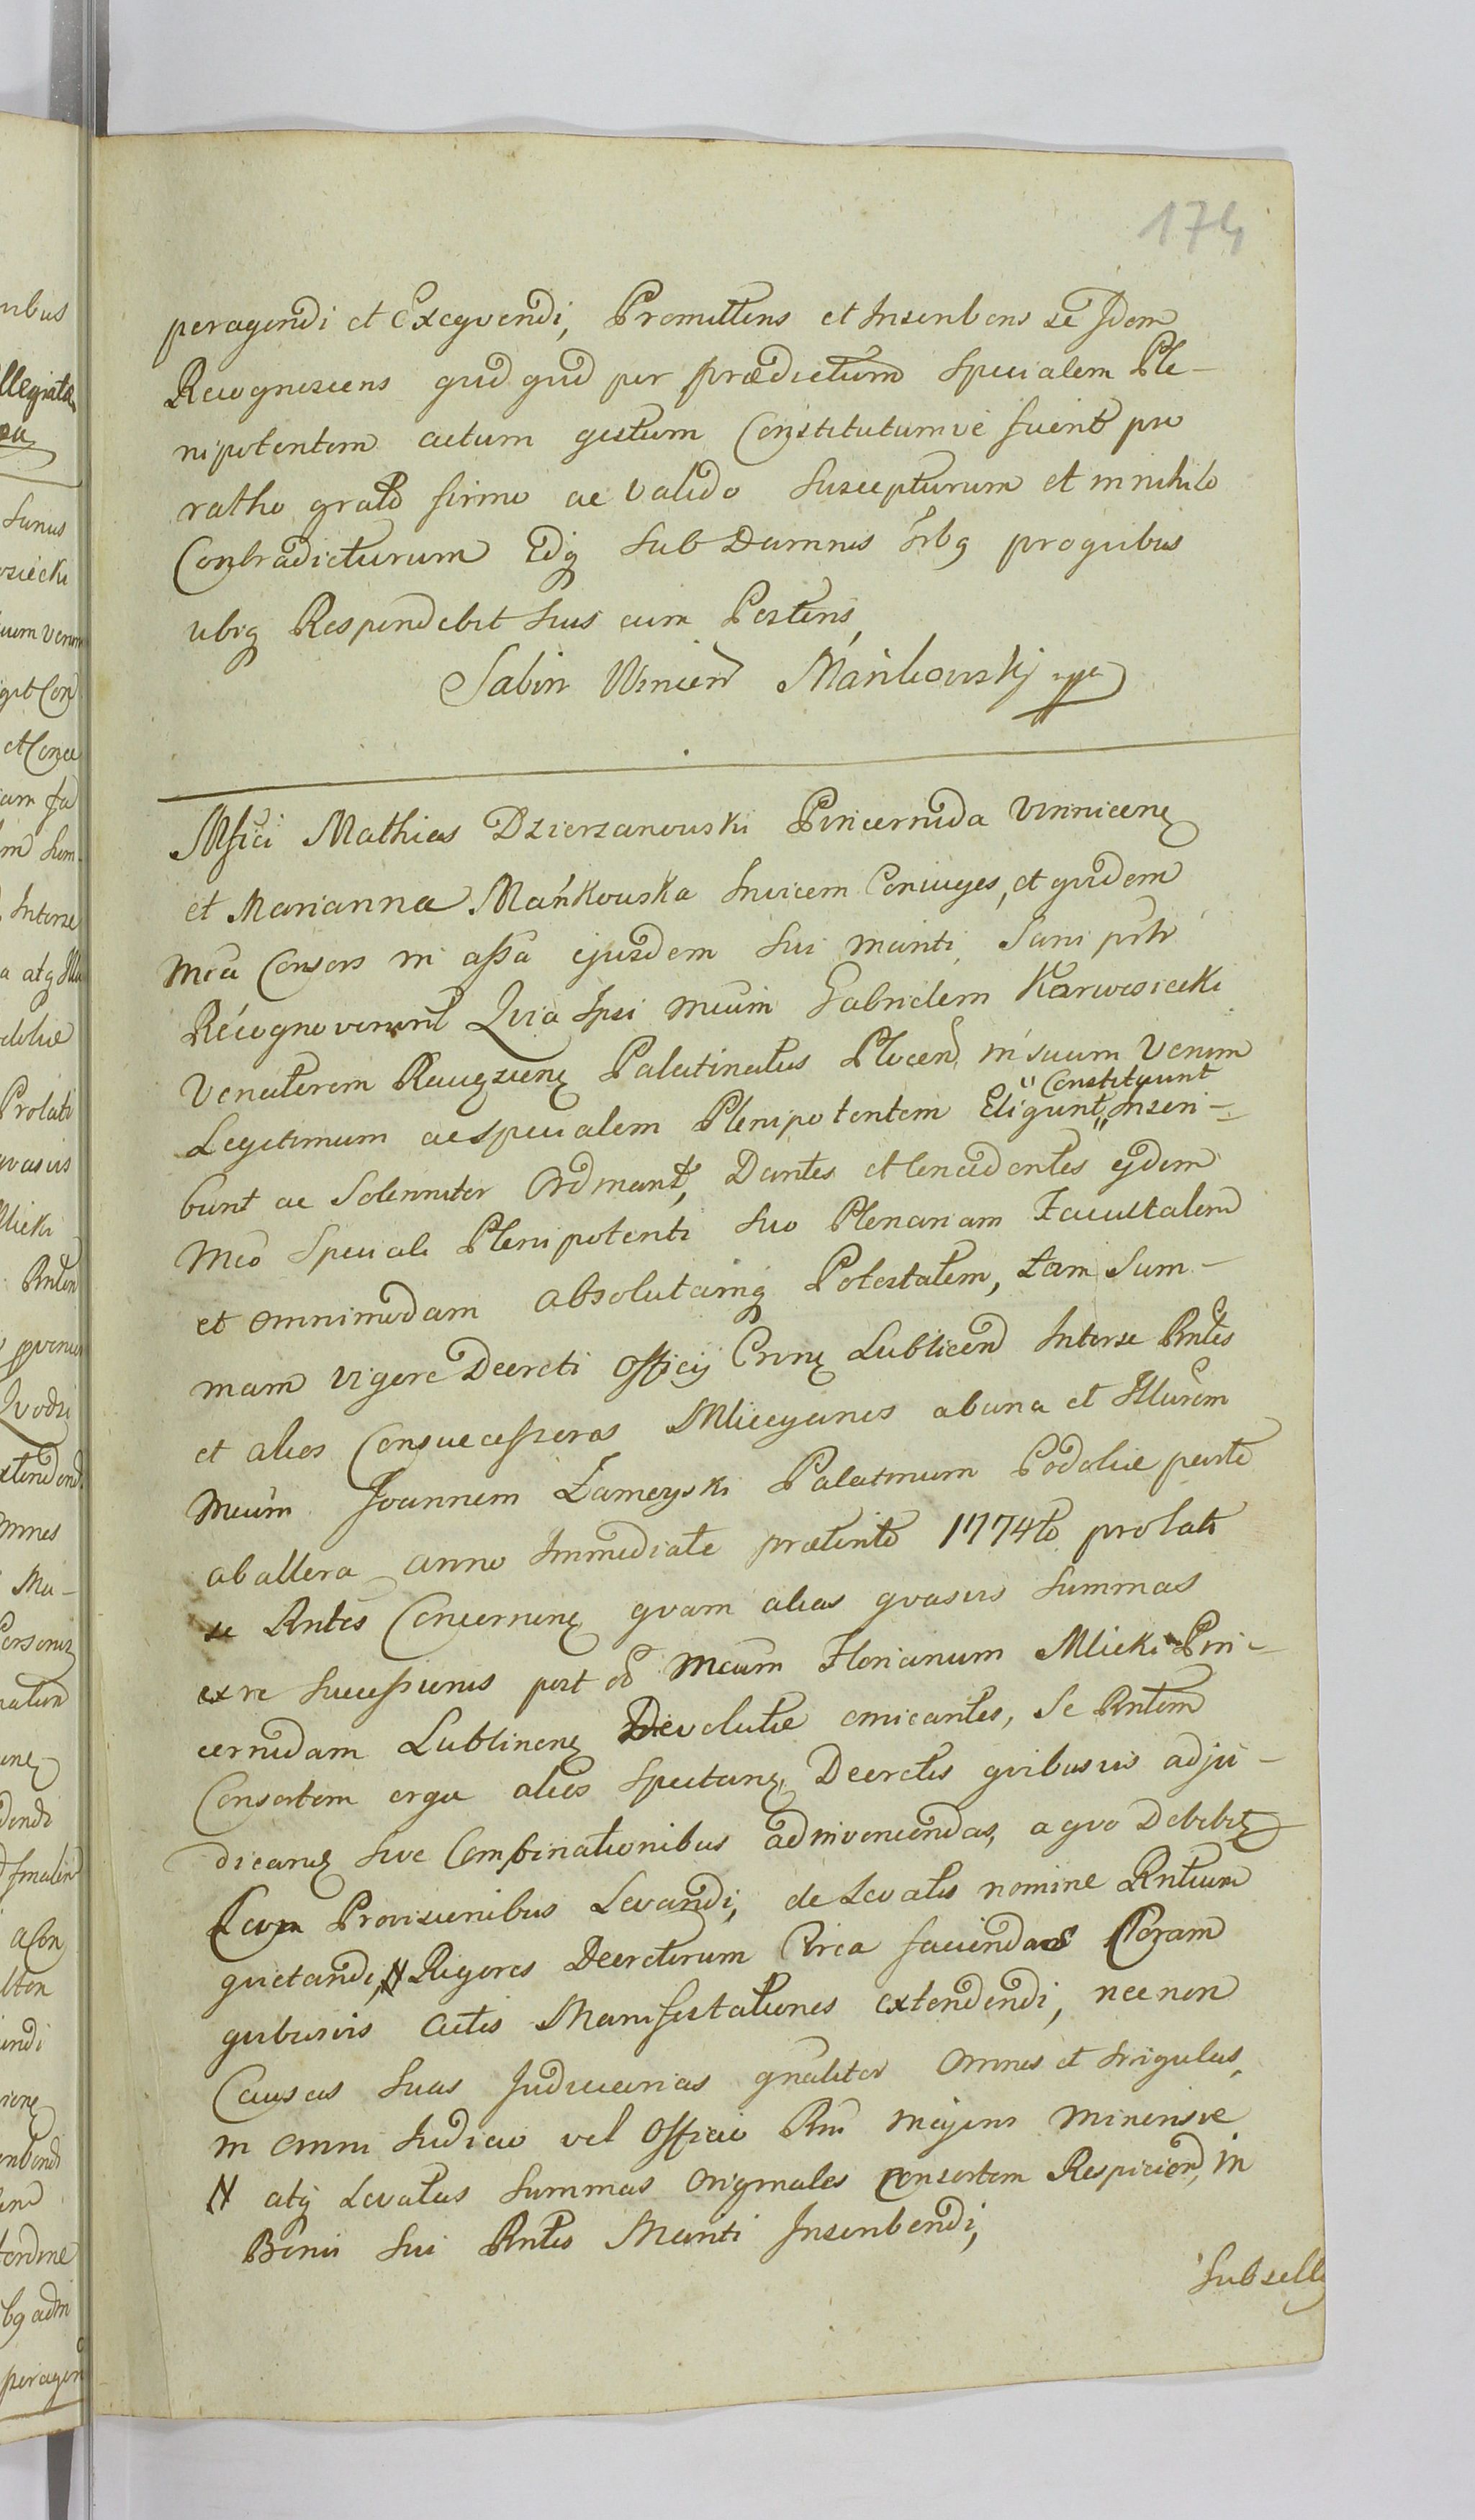 174
peragendi et Exeqvendi, Promittens et Inscribens se Idem
Recognoscens qvidqvid per prædictum specialem Ple-
nipotentem actum gestum Constitutumve fuerit pro
ratho grato firmo ac valido suscepturum et in nihilo
Contradicturum Idq sub Damnis proqvibus
ubiq Respondebit suis cum Posteris,
Sabin Wincen Mańkowskj mpa
Mfici Mathias Dzierzanowski Pincernida Vinnicen
et Marianna Mańkowska Invicem Coniuges, et qvidem
Mca Consors in assa ejusdem sui mariti, Sani
Recognoverunt Qvia Ipsi Mcum Gabrielem Karwosiecki
Venatorem Raugzien Palatinatus Plocen in suum Verum
Legitimum ac specialem Plenipotentem Eligunt, "Constituunt" Inscri-
bunt ac Solenniter Ordinant, Dantes et Concedentes ejdem
Mco Speciali Plenipotenti suo Plenariam Facultatem
et omnimodam absolutamq Potestatem, tam Sum-
mam vigore Decreti Officij Lublicen Interse Rntes
et alios Consuccessores Mliceyanos abuna et Illurem
Mcum Joannem Zameyski Palatinum Podoliæ parte
aballera anno Immediate præterito 1774to prolati
se Rntes Concernen qvam alias qvasvis Summas
exre successionis post Mcum Florianum Mlicki Pin-
cernidam Lublinen Devolutæ emicantes, Se Rntem
Consortem erga alios spectan, Decretis qvibusvis adju-
dicatas sive Combinationibus adinveniendas, aqvo Debebit
Cum Provisionibus Levandi, de Levatis nomine Rntium
qvietandi, N Rigores Decretorum Circa faciendas Coram
qvibusvis Actis Manifestationes extendendi, necnon
Causas suas Judiciarias gnaliter Omnes et singulas,
in omni Judicio vel Officio Rni Majoris Minorisve
N atq Levatas Summas Originales Consortem Respicien, in
Bonis sui Rntis Mariti Inscribendi,
Subsellij